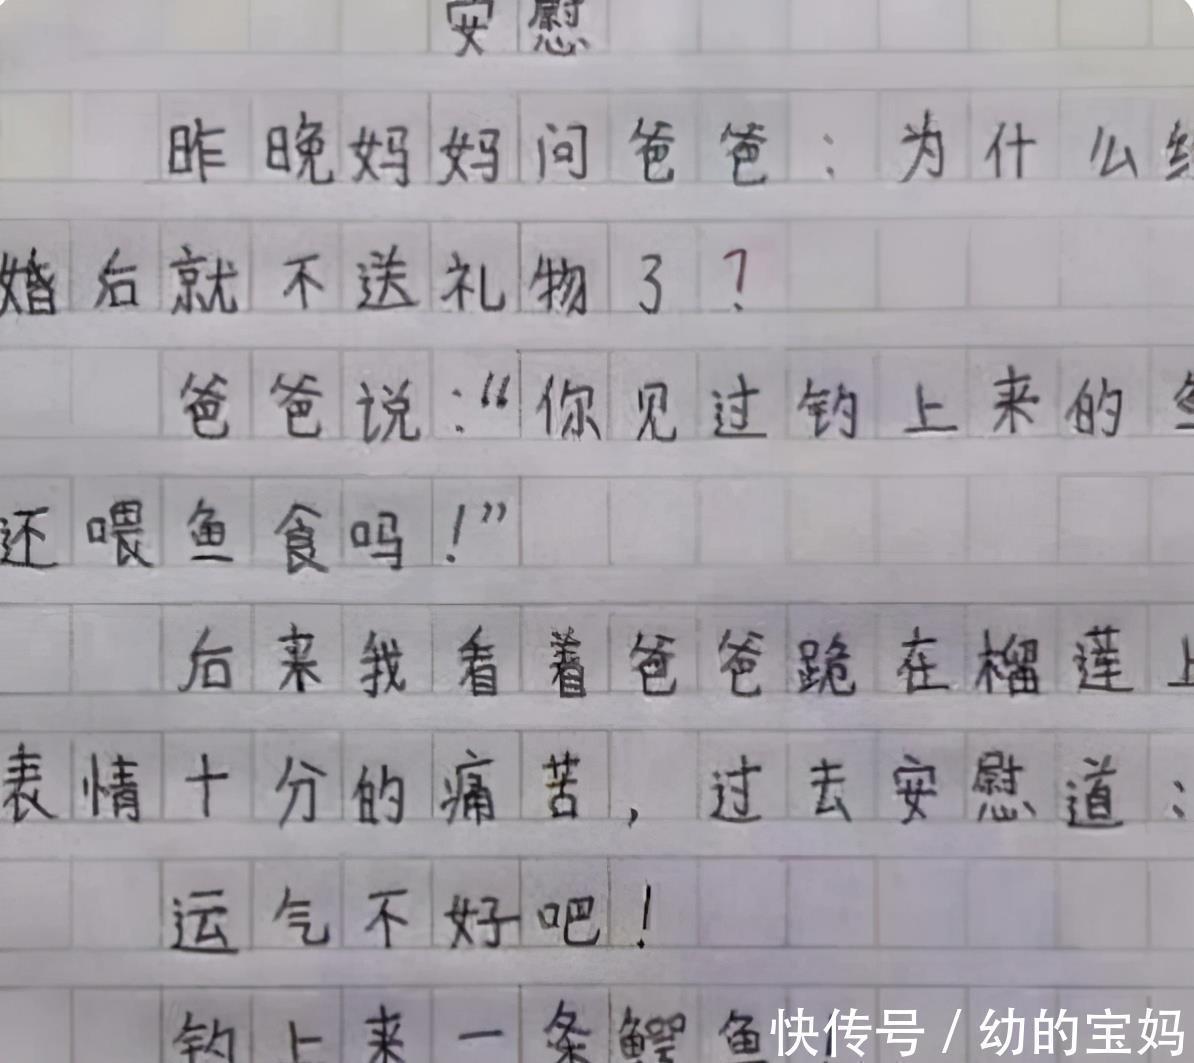 安慰
昨晚妈妈问爸爸:为什么结
婚后就不送礼物了?
爸爸说:“你见过钓上来的鱼
还喂鱼食吗!”
后来我看着爸爸跪在榴莲上
表情十分的痛苦,过去安慰道:
运气不好吧!
钓上来一条鳄鱼!
快传号/幼的宝妈